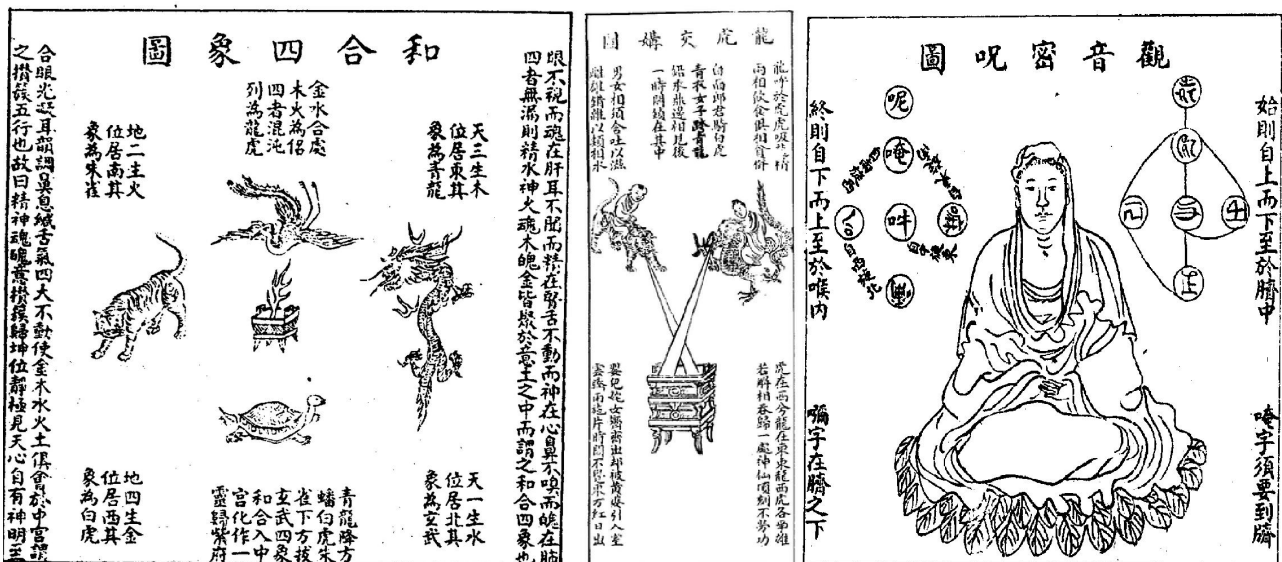 和合四象圖
眼不視而魂在肝耳不聞而精在腎舌不動而神在心鼻不嗅而魄在肺
四者無漏則精水神火魂木魄金皆聚於意土之中而謂之和合四象也
天三生木
位居東其
象為青龍
金水合處
木火為侶
四者混沌
列為龍虎
地二生火
位居南其
象為朱雀
天一生水
位居北其
象為玄武
青龍降方
蟠白虎朱
雀下方
玄武四象
和合入中
宮化作一
靈歸紫府
地四生金
位居西其
象為白虎
合眼光凝耳韻調鼻息緘舌氣四大不動使金木水火土俱會於中宮謂
之攢簇五行也故曰精神魂魄意攢簇歸坤位靜極見天心自有神明至
龍虎交媾圖
龍吟於虎虎吸龍精
兩相飲食俱相貪併
白面郎君騎白虎
青衣女子跨青龍
鉛汞鼎邊相見後
一時關鎖在其中
男女相須含吐以滋
雌雄錯雜以類相求
虎在西兮龍在東東龍西虎各爭雄
若解相吞歸一處神仙頃刻不勞功
嬰兒姹女齊齊出却被黃婆引入室
雲濟雨施片時間不覺東方紅日出
觀音密呪圖
始則自上而下至於臍中
唵字須要到臍
呢
唵
吽
終則自下而上至於喉內
嘛字在臍之下